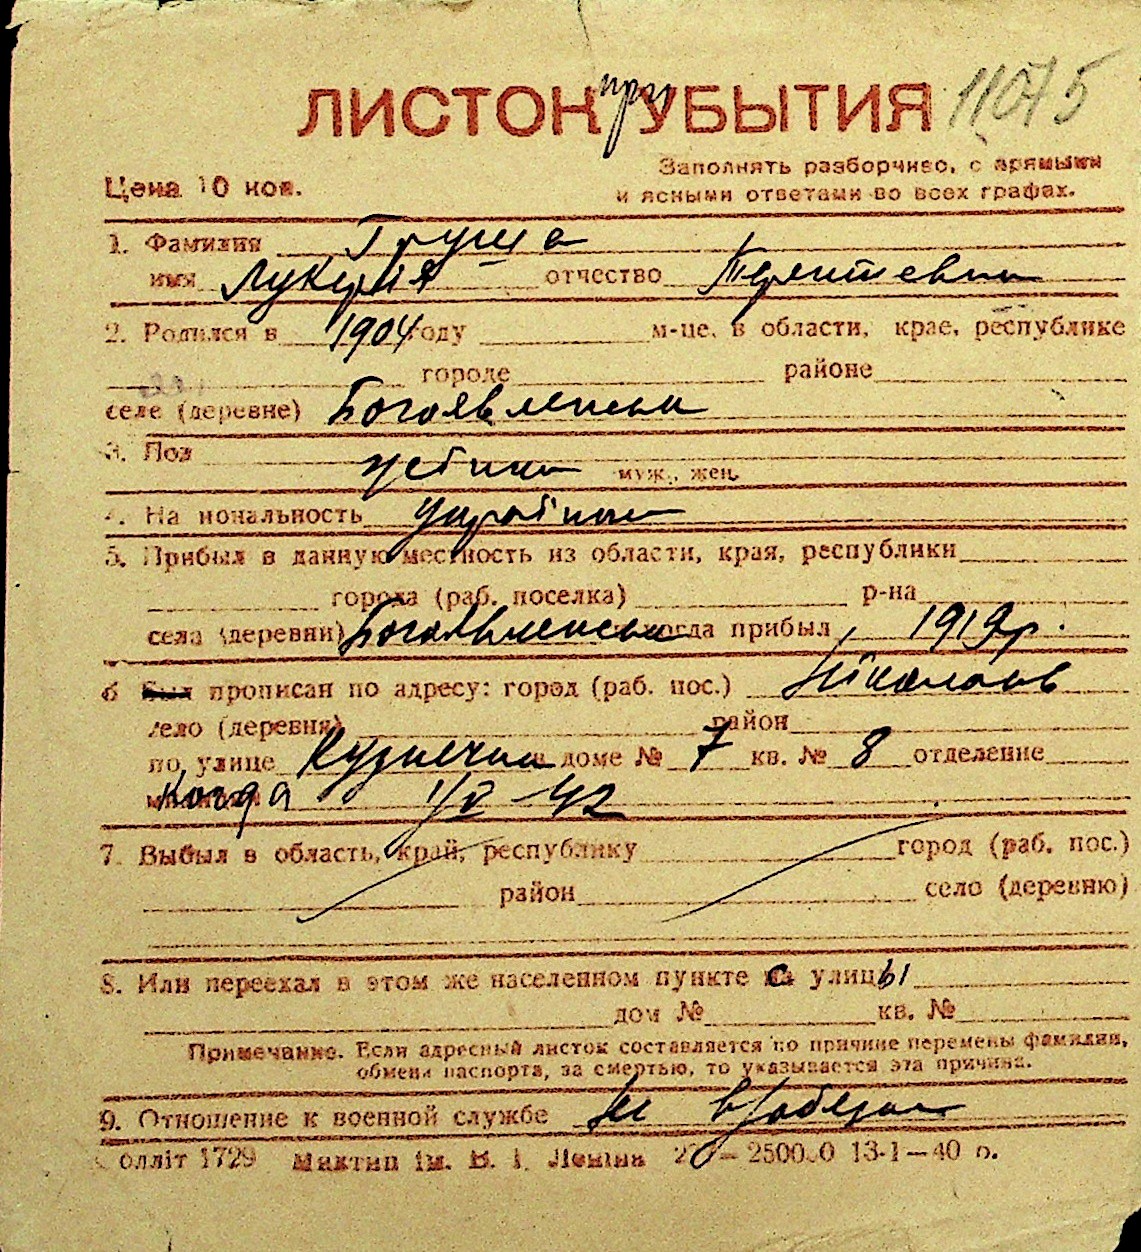 ЛИСТОК при УБЫТИЯ 11075
Цена 10 коп.
Заполнять разборчиво, с прямыми
и ясными ответами во всех графах.
1. Фамилия Груша
имя Лукерія отчество
2. Родился в 1904 году м-це, в области, крае, республике
городе районе
селе (деревне) Богоявленськ
3. Пол муж., жен.
4. На иональность
5. Прибыл в данную местность из области, края, республики
города (раб. поселка) р-на
села (деревни) Богоявленськ когда прибыл 1919 р.
6 был прописан по адресу: город (раб. пос.) Ніколаєв
село (деревня) район
по улице Кузнечна в доме № 7 кв. № 8 отделение
Когда 1/V-42
7. Выбыл в область, край, республику город (раб. пос.)
район село (деревню)
8. Или переехал в этом же населенном пункте с улицы
дом № кв. №
Примечание. Если адресный листок составляется по причине перемены фамилии,
обмена паспорта, за смертью, то указывается эта причина.
9. Отношение к военной службе
олліт 1729 Миктип ім. В. І. Леніна 13-1—40 р.